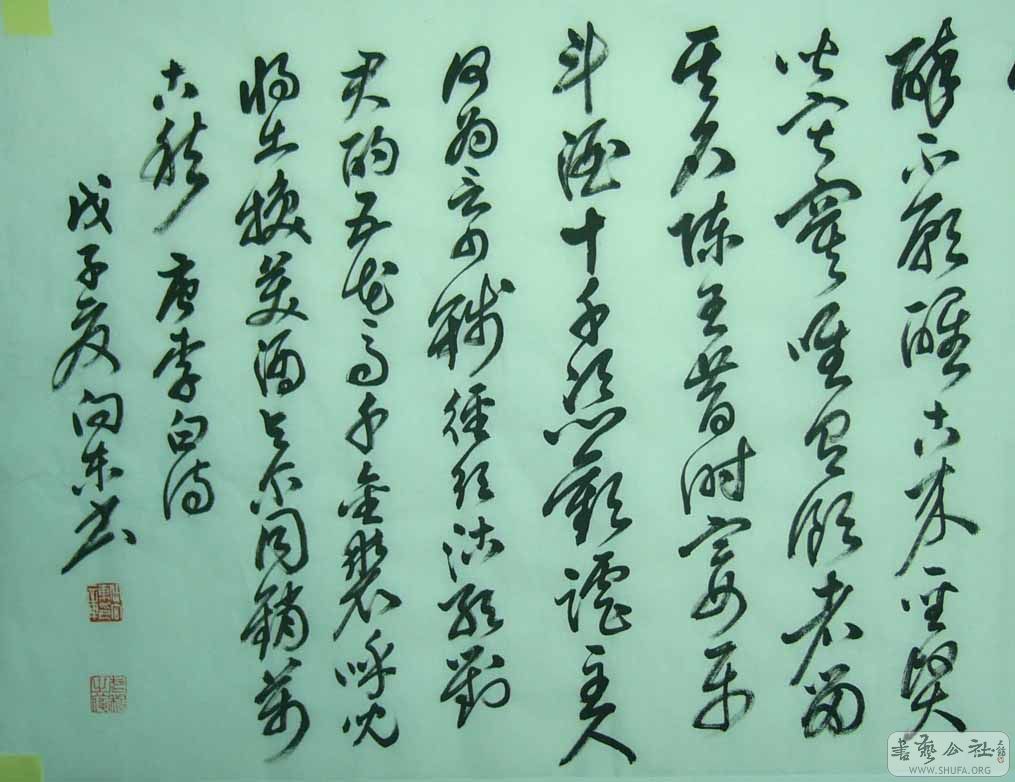 醉不願醒古來聖賢
皆寂寞唯有飲者留
其名陳王昔時宴平
斗酒十千恣歡謔主人
何為言少錢徑須沽取對
君酌五花馬千金裘呼兒
將出換美酒與爾同銷萬
古愁 唐李白詩
戊子夏向東書
書藝公社
WWW.SHUFA.ORG